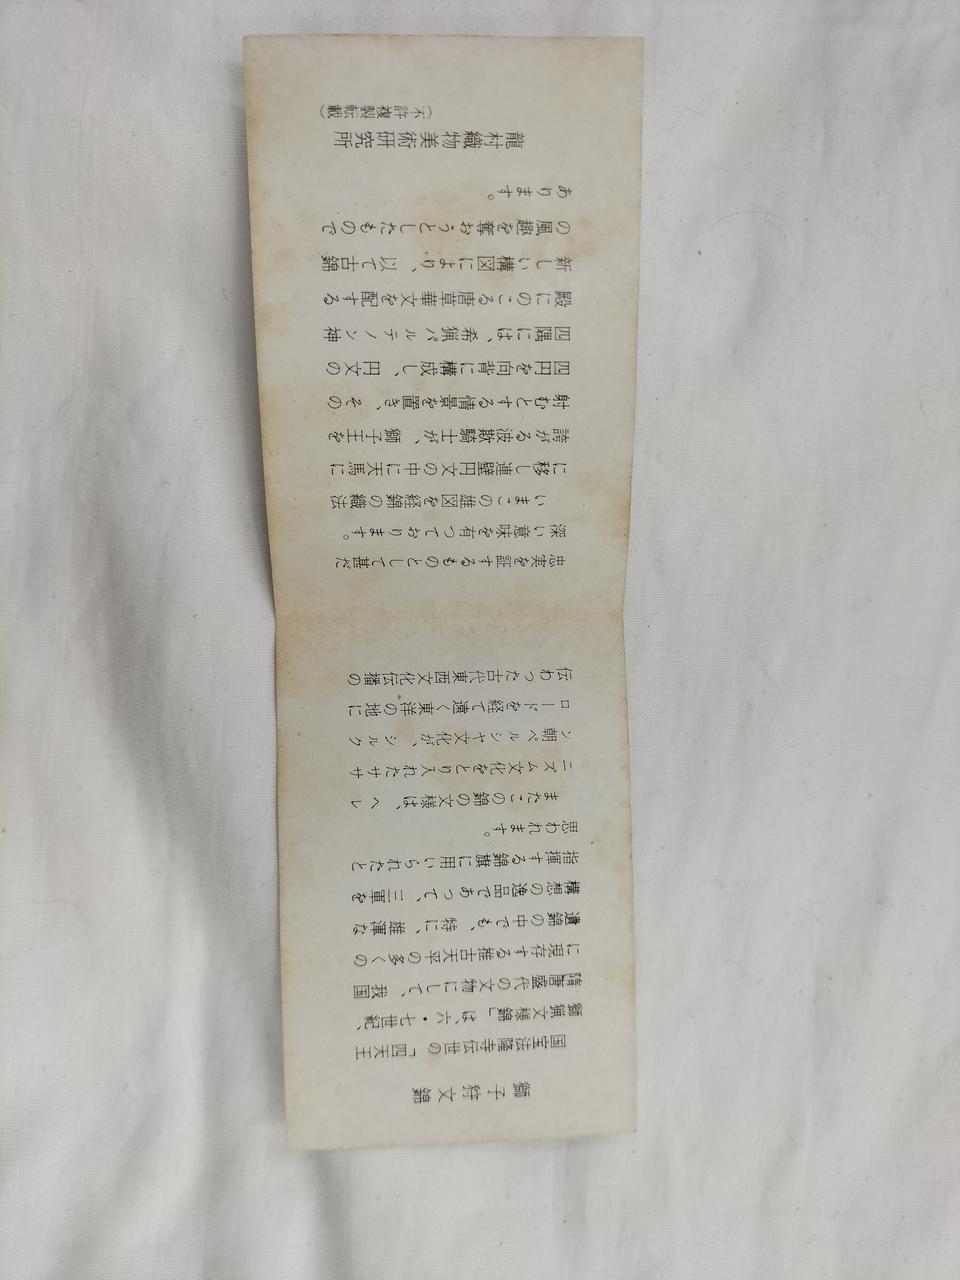 獅子狩文錦
国宝法隆寺伝世の「四天王
獅猟文様錦」は、六・七世紀、
隋唐盛代の文物にして、我国
に現存する推古天平の多くの
遺錦の中でも、特に、雄渾な
構想の逸品であつて、三軍を
指揮する錦旗に用いられたと
思われます。
またこの錦の文様は、ヘレ
ニズム文化をとり入れたササ
ン朝ペルシヤ文化が、シルク
ロードを経て遠く東洋の地に
伝わつた古代東西文化伝播の
忠実を証するものとして甚だ
深い意味を有つております。
いまこの雄図を経錦の織法
に移し連璧円文の中に天馬に
誇がる波欺騎士が、獅子王を
射むとする情景を置き、その
四円を向背に構成し、円文の
四隅には、希猟パルテノン神
殿にのこる唐草華文を配する
新しい構図により、以て古錦
の風趣を奪おうとしたもので
あります。
龍村織物美術研究所
(不許複製転載)